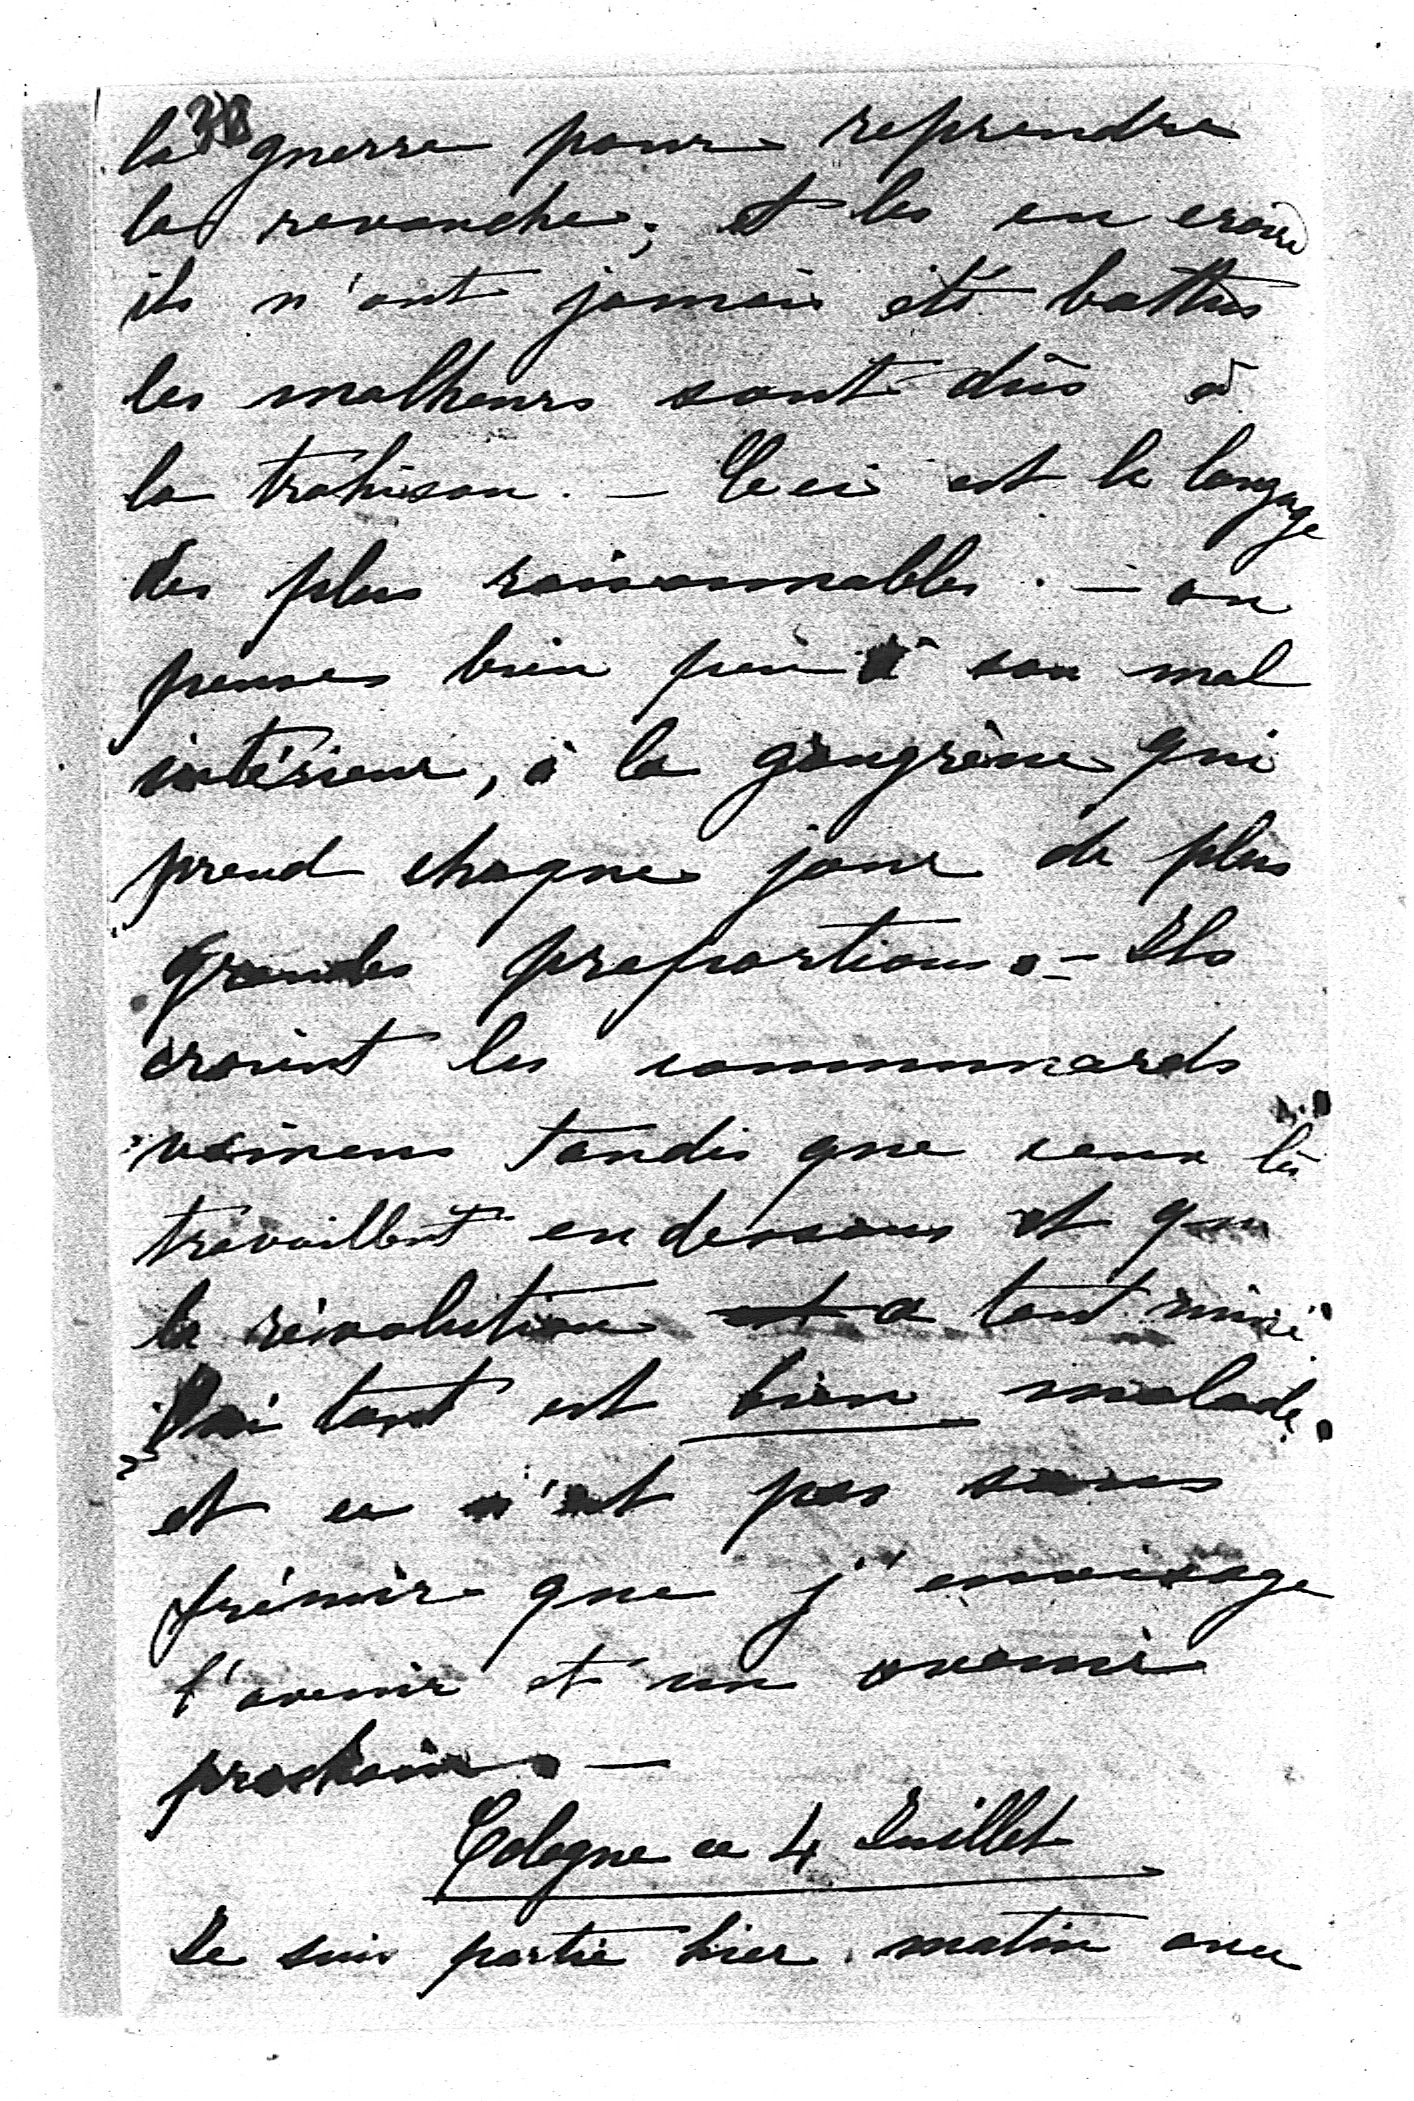 la guerre pour reprendre
la revanche; et les en croire
ils n'ont jamais été battus
les malheurs sont dûs à
la trahison. — Ceci est le langage
des plus raisonnables. — on
pense bien peu à son mal
intérieur, à la gangrène qui
prend chaque jour de plus
grandes proportions. — Ils
croient les communards
vaincus tandis que ceux là
travaillent en dessous et que
la révolution a tout miné
tout est bien malade.
et ce n'est pas sans
frémir que j'envisage
l'avenir et un avenir
prochain. —
Cologne ce 4 Juillet
Je suis partie hier matin avec